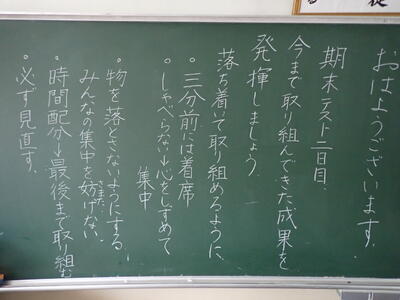 おはようございます。
期末テスト二日目。
今まで取り組んできた成果を
発揮しましょう。
落ち着いて取り組めるように、
・三分前には着席
・しゃべらない→心をしずめて
集中
・物を落とさないようにする。
みんなの集中を妨げない。
さまた
・時間配分→最後まで取り組む
・必ず見直す。